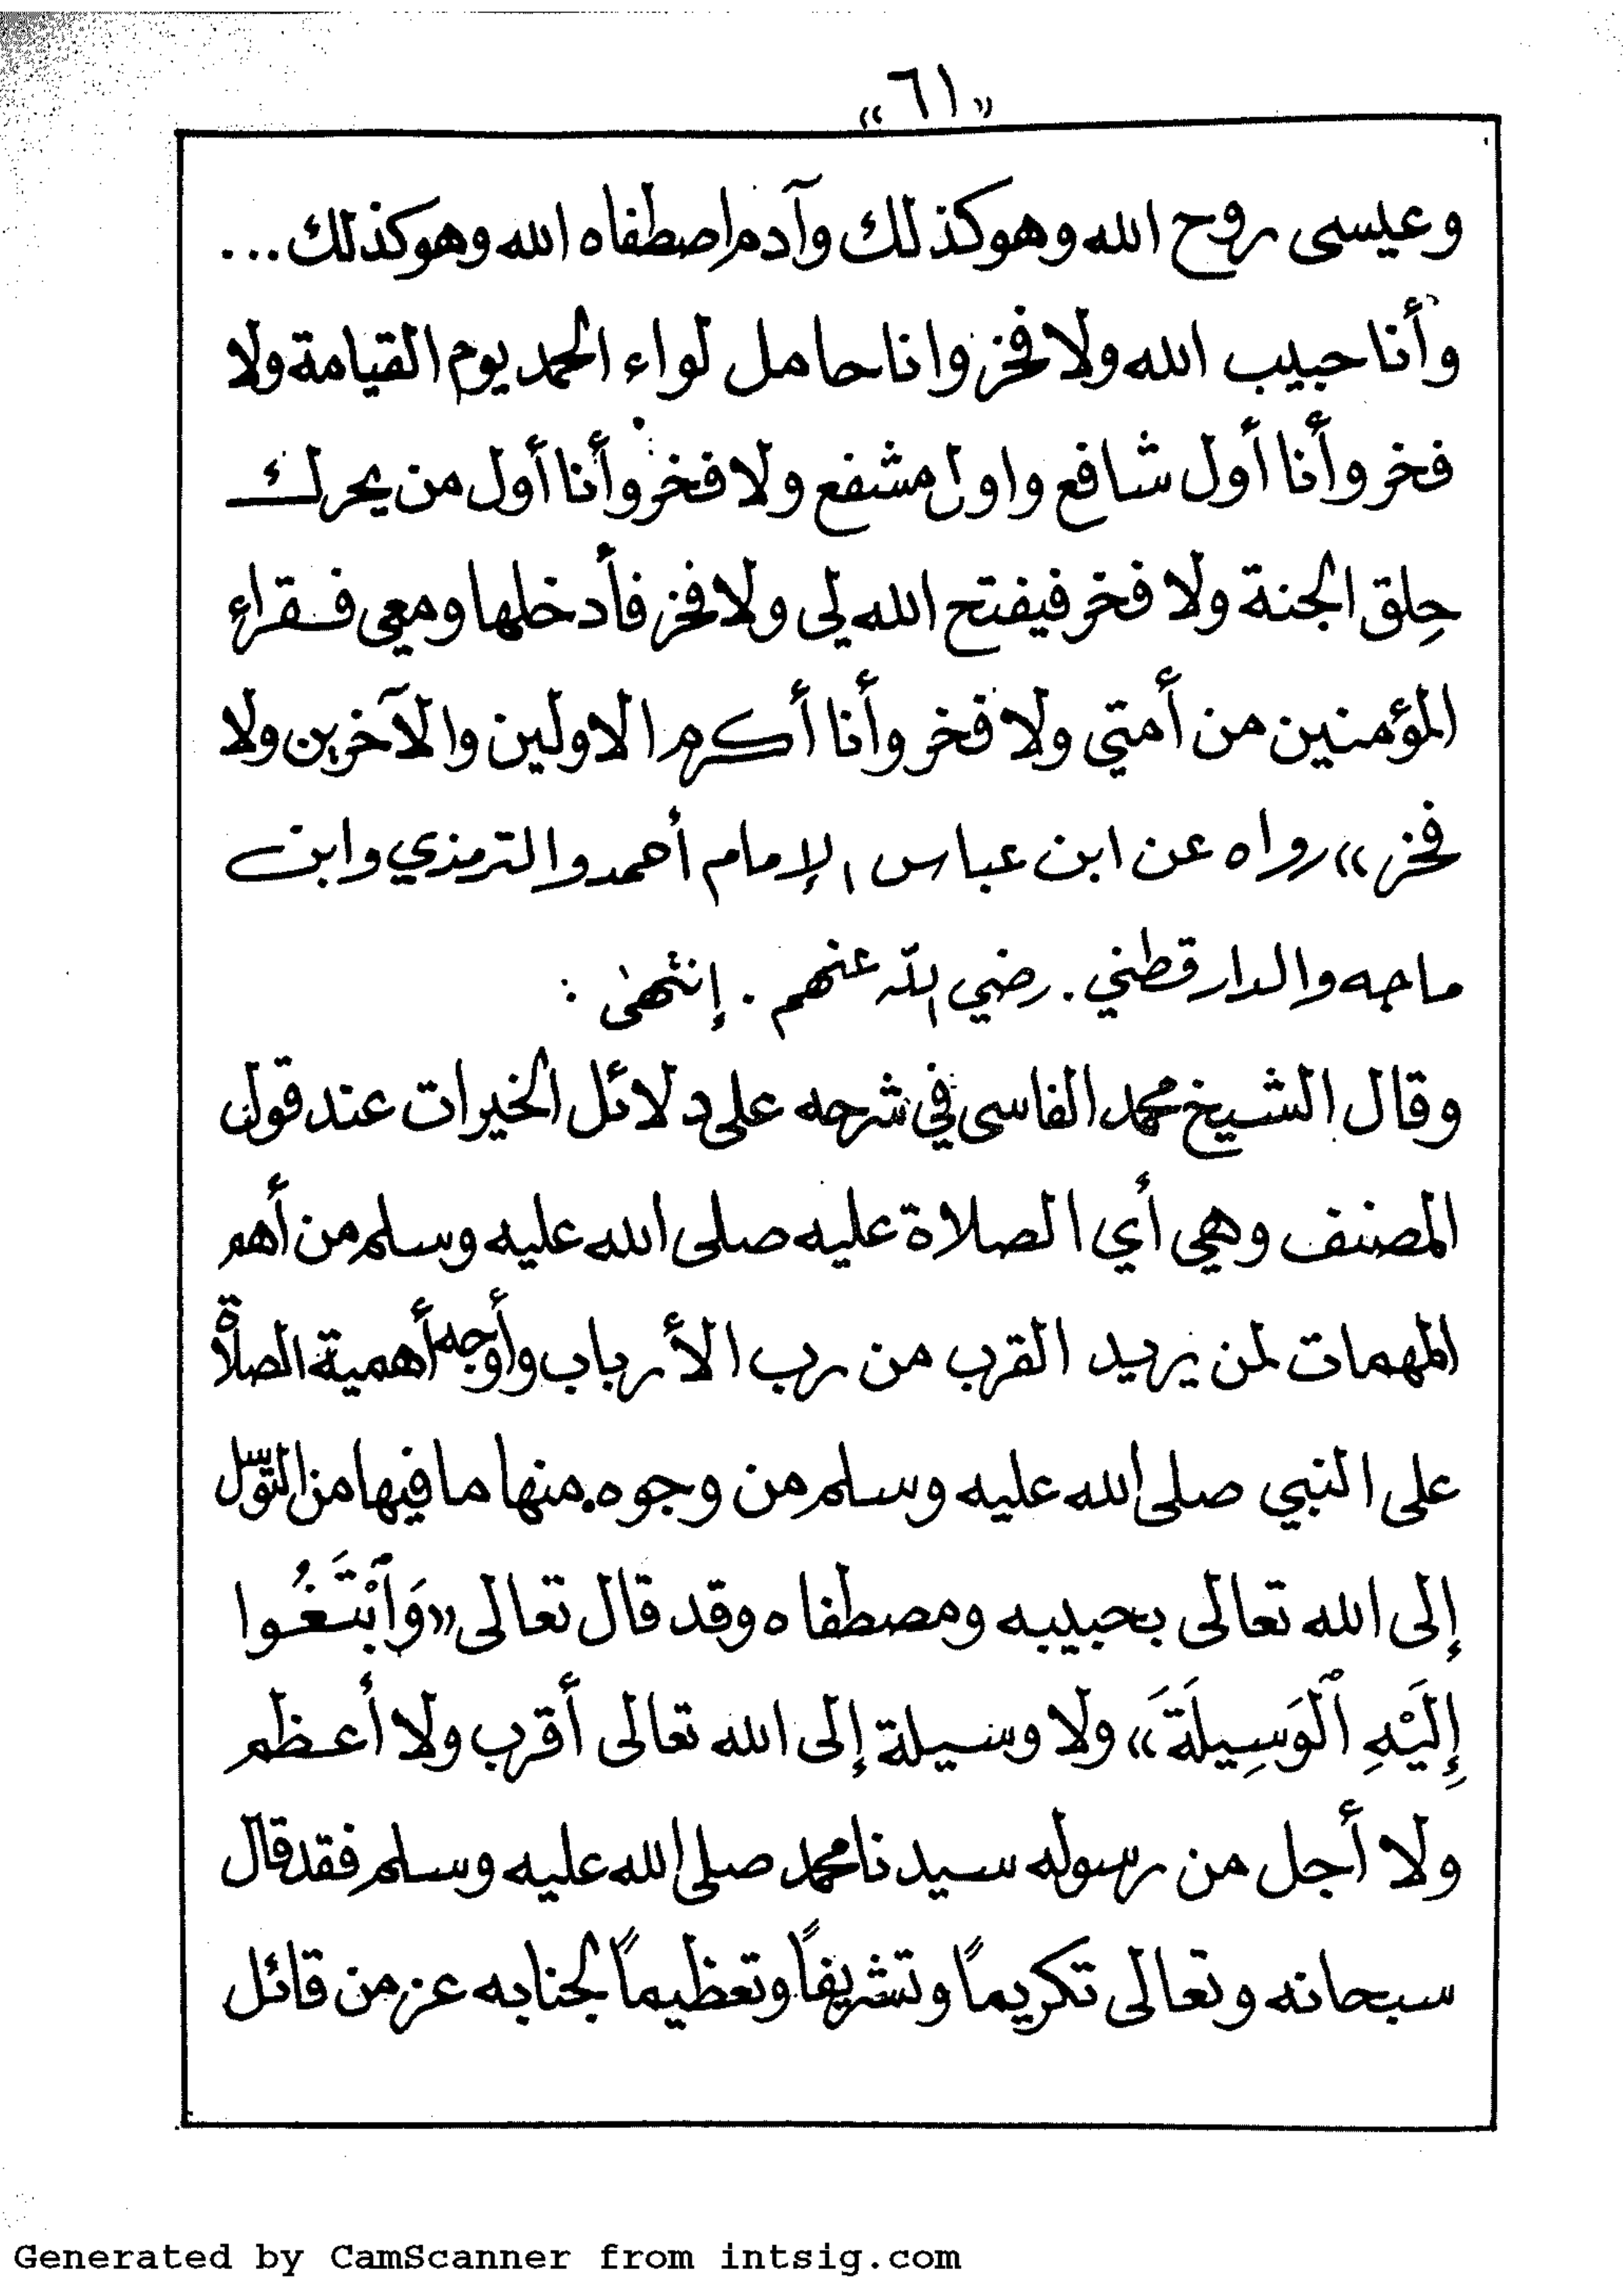 «٦١»
وعيسى روح الله وهو كذلك وآدم اصطفاه الله وهو كذلك...
وأنا حبيب الله ولا فخر وانا حامل لواء الحمد يوم القيامة ولا
فخر وأنا أول شافع واول مشفع ولا فخر وأنا أول من يحرك
حِلق الجنة ولا فخر فيفتح الله لي ولا فخر فأدخلها ومعي فقراء
المؤمنين من أمتي ولا فخر وأنا أكرم الاولين والآخرين ولا
فخر» رواه عن ابن عباس الإمام أحمد والترمذي وابن
ماجه والدارقطني . رضي الله عنهم . إنتهى :
وقال الشيخ محمد الفاسى في شرحه على دلائل الخيرات عند قول
المصنف وهي أي الصلاة عليه صلى الله عليه وسلم من أهم
المهمات لمن يريد القرب من رب الأرباب وأوجه أهمية الصلاة
على النبي صلى الله عليه وسلم من وجوه. منها ما فيها من التوسّل
إلى الله تعالى بحبيبه ومصطفاه وقد قال تعالى «وَٱبْتَغُوا
إِلَيْهِ ٱلْوَسِيلَةَ» ولا وسيلة إلى الله تعالى أقرب ولا أعظم
ولا أجل من رسوله سيدنا محمد صلى الله عليه وسلم فقد قال
سبحانه وتعالى تكريماً وتشريفاً وتعظيماً لجنابه عز من قائل
Generated by CamScanner from intsig.com